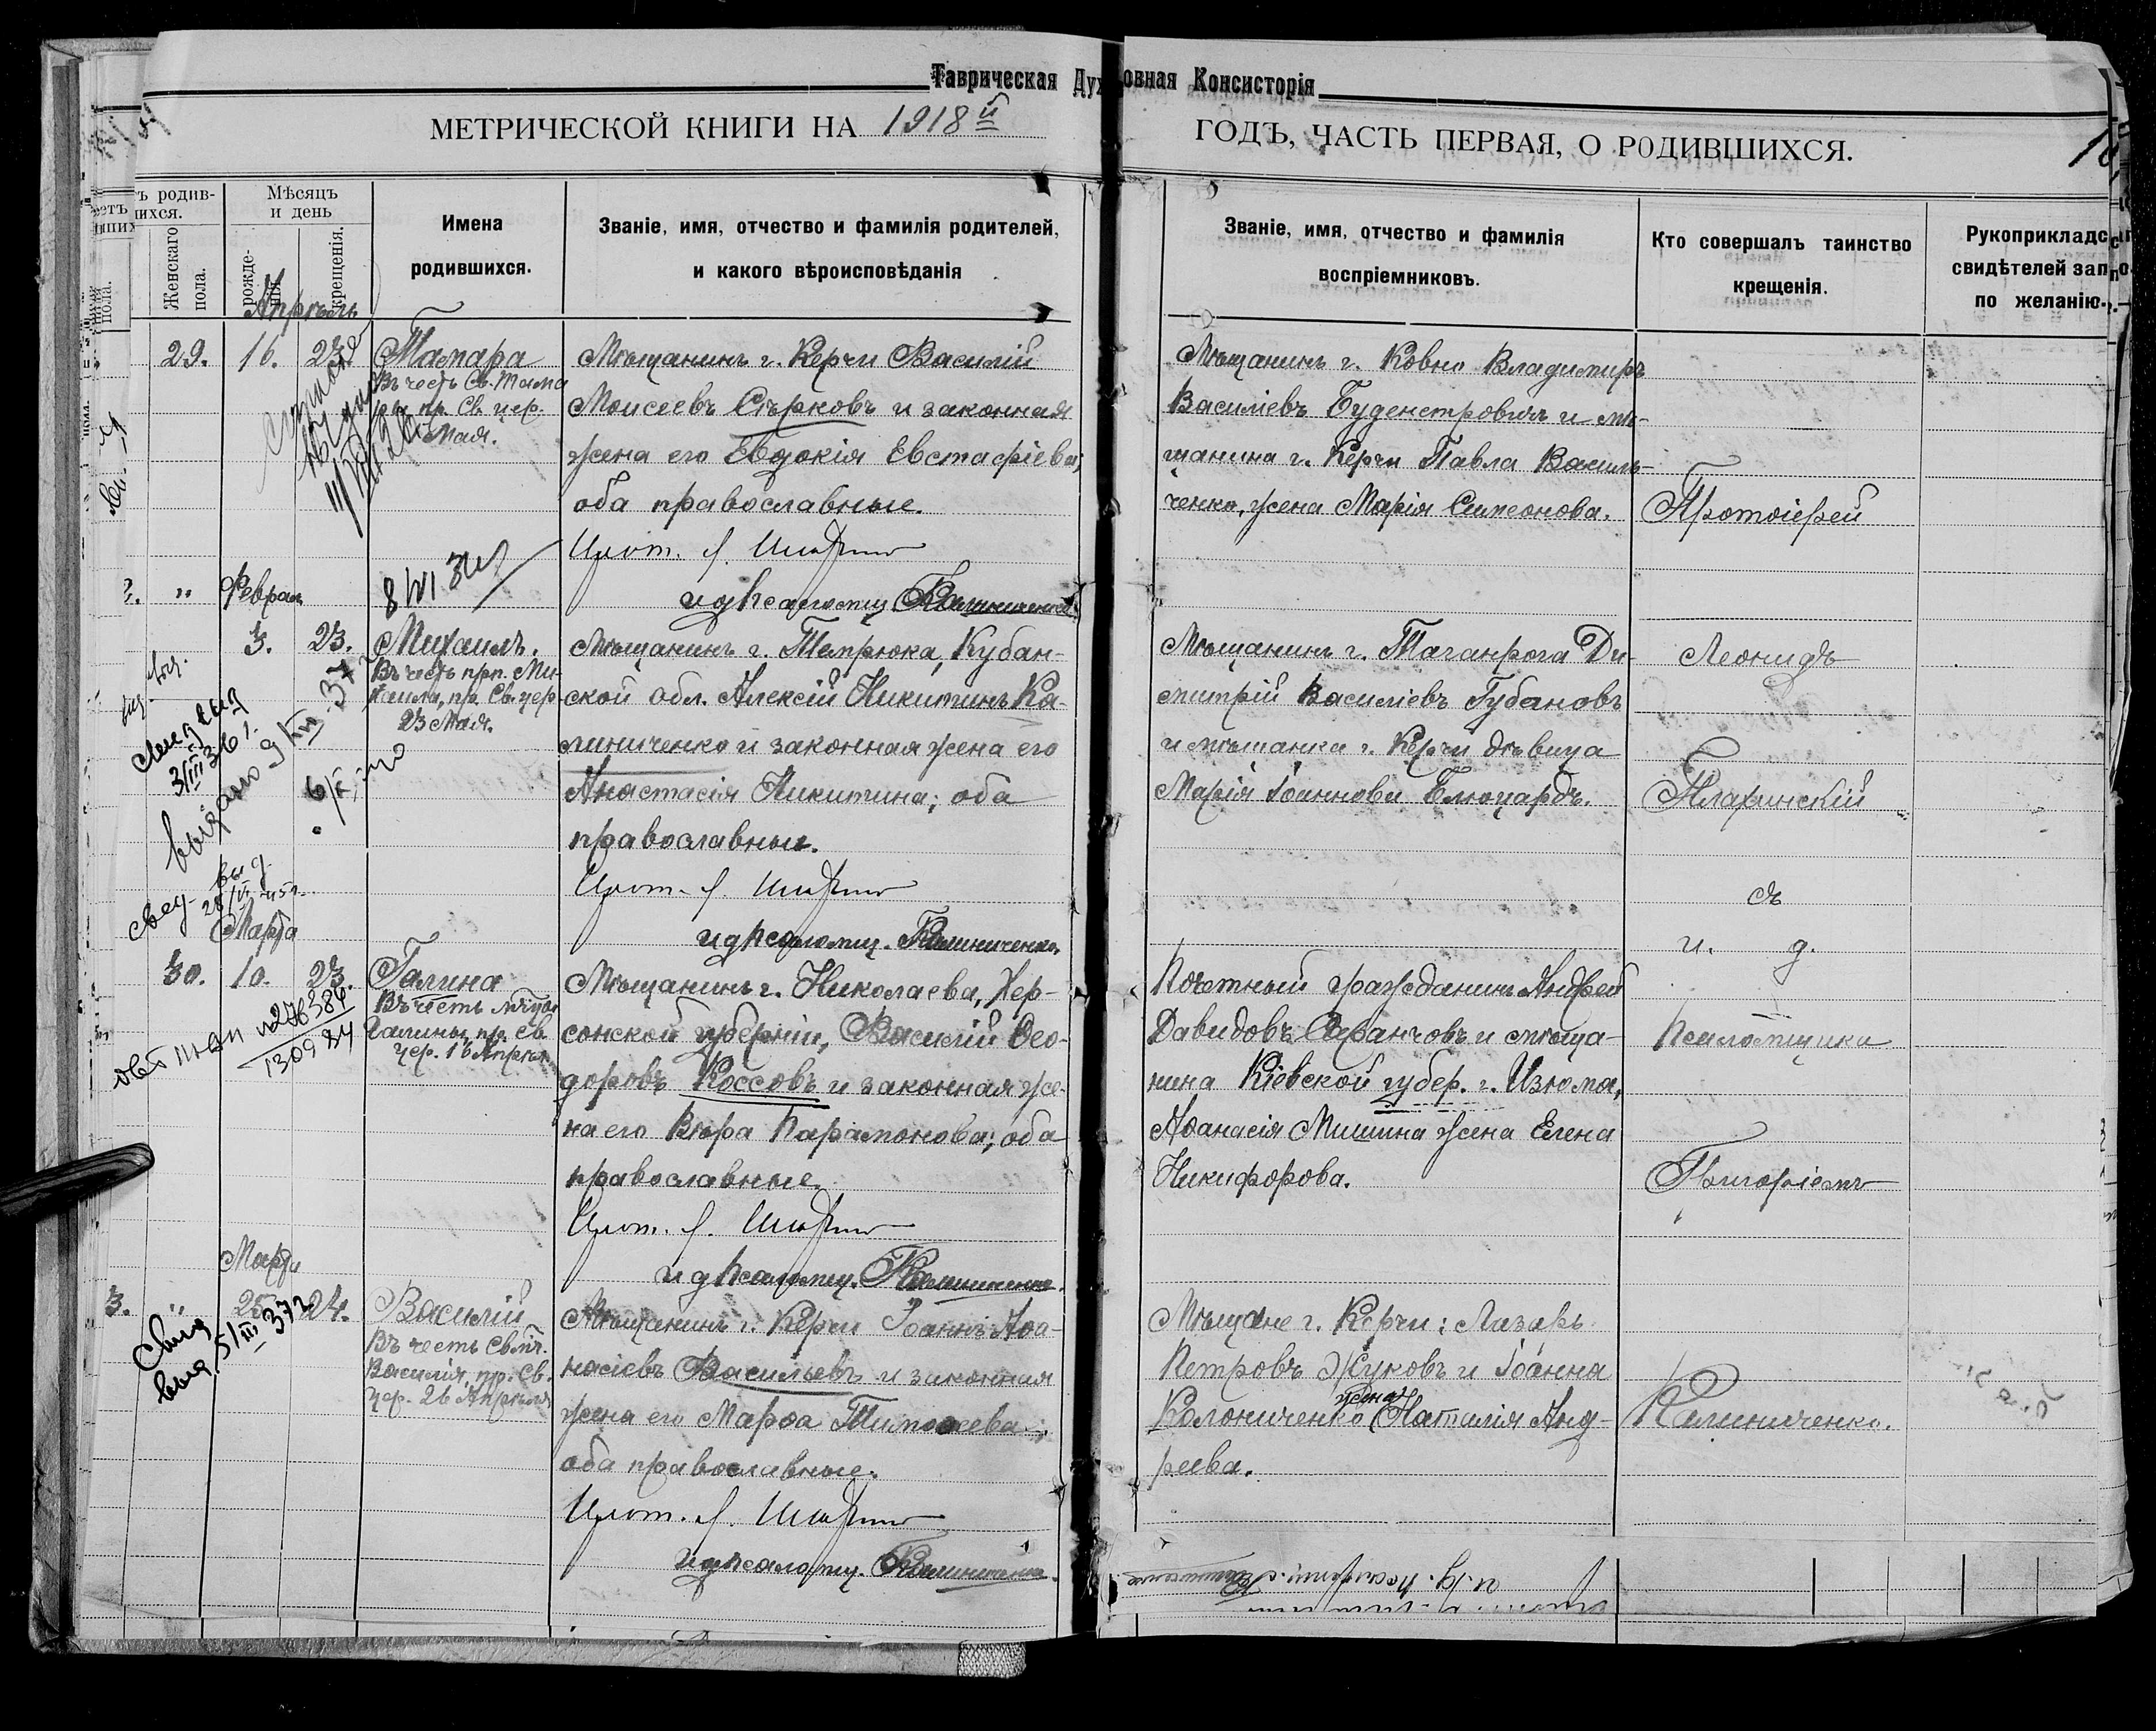 Таврическая Духовная Консисторія
МЕТРИЧЕСКОЙ КНИГИ НА 1918 й ГОДЪ, ЧАСТЬ ПЕРВАЯ, О РОДИВШИХСЯ.
ъ родив-
шихся.
Женскаго пола.
Мѣсяцъ и день
рожде-
нія.
крещенія.
Имена
родившихся.
Званіе, имя, отчество и фамилія родителей,
и какого вѣроисповѣданія
Званіе, имя, отчество и фамилія
воспріемниковъ.
Кто совершалъ таинство
крещенія.
Рукоприкладс
свидѣтелей зап
по желанію.
Апрѣль
29. 16. 23. Тамара
Въ честь Св. Тама
ры пр. Св. цер.
Мая.
Мѣщанинъ г. Керчи Василій
Моисеевъ Сѣрковъ и законная
жена его Евдокія Евстафіева;
оба православные.
Прот. Л.
и д псаломщ. Калиниченко
Мѣщанинъ г. Ковно Владимиръ
Василіевъ и мѣ-
щанина г. Керчи Павла Василь-
ченко, жена Марія Симеонова.
Протоіерей
8/VI 34
Феврал
3. 23. Михаилъ.
Въ честь прп. Ми-
хаила, пр. Св. цер
23 Мая.
Мѣщанинъ г. Темрюка, Кубан-
ской обл. Алексій Никитинъ Ка-
линиченко и законная жена его
Анастасія Никитина; оба
православные.
Прот. Л.
и д псаломщ. Калиниченко
Мѣщанинъ г. Таганрога Ди-
митрій Василіевъ Губановъ
и мѣщанка г. Керчи дѣвица
Марія Іоаннова
Леонидъ
съ
и. д.
выдано
свед. выд
Марта
30. 10. 23. Галина
Въ честь мчцы
Галины, пр. Св.
цер. 16 Апрѣля
Мѣщанинъ г. Николаева, Хер-
сонской губерніи, Василій Ѳео-
доровъ Коссовъ и законная же-
на его Вѣра Парамонова; оба
православные.
Прот. Л.
и д псаломщ. Калиниченко
Почетный гражданинъ Андрей
Давидовъ и мѣща-
нина Кіевской губер. г. Изюма,
Аѳанасія Мишина жена Елена
Никифорова.
Псаломщика
Григоріемъ
Марта
3. " 25 24. Василій
Въ честь Свмч.
Василія, пр. Св.
цер. 26 Апрѣля
Мѣщанинъ г. Керчи Іоаннъ Аѳа-
насіевъ Васильевъ и законная
жена его Марѳа Тимоѳеева;
оба православные.
Прот. Л.
и д псаломщ. Калиниченко
Мѣщане г. Керчи: Лазарь
Петровъ Жуковъ и Іоанна
Калониченко жена Наталія Анд-
реева.
Калиниченко.